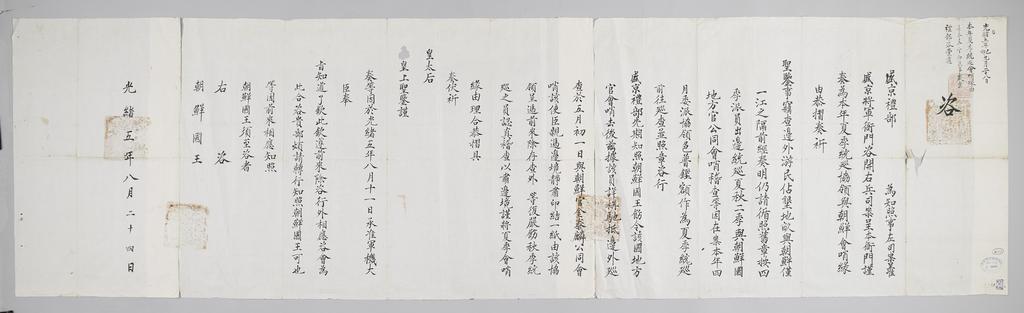 咨
盛京禮部 為知照事左司案呈
盛京將軍衙門咨開右兵司案呈本衙門謹
奏為本年夏季統巡協領與朝鮮會哨緣
由恭摺奏祈
聖鑒事竊查邊外游民佔墾地畝與朝鮮僅
一江之隔前經奏明仍請循照舊章按四
季派員出邊統巡夏秋二季與朝鮮國
地方官公同會哨稽查等因在案本年四
月委派協領邑普鏗額作為夏季統巡
前往巡查並照章咨行
盛京禮部先期知照朝鮮國王飭令該國地方
官會哨去後茲據該員詳稱馳抵邊外巡
查於五月初一日與朝鮮官金泰麟公同會
哨該使臣親遞邊境靜肅印結一紙由該協
領呈遞前來除存查外 等復嚴飭秋季統
巡之員認真稽查以肅邊境謹將夏季會哨
緣由理合恭摺具
奏伏祈
皇太后
皇上聖鑒謹
奏等因於光緒五年八月十一日承准軍機大
臣奉
旨知道了欽此欽遵前來除咨行外相應咨會為
此合咨貴部煩請轉行知照朝鮮國王可也
等因前來相應知照
朝鮮國王須至咨者
右 咨
朝 鮮 國 王
光 緒 五 年 八 月 二 十 四 日